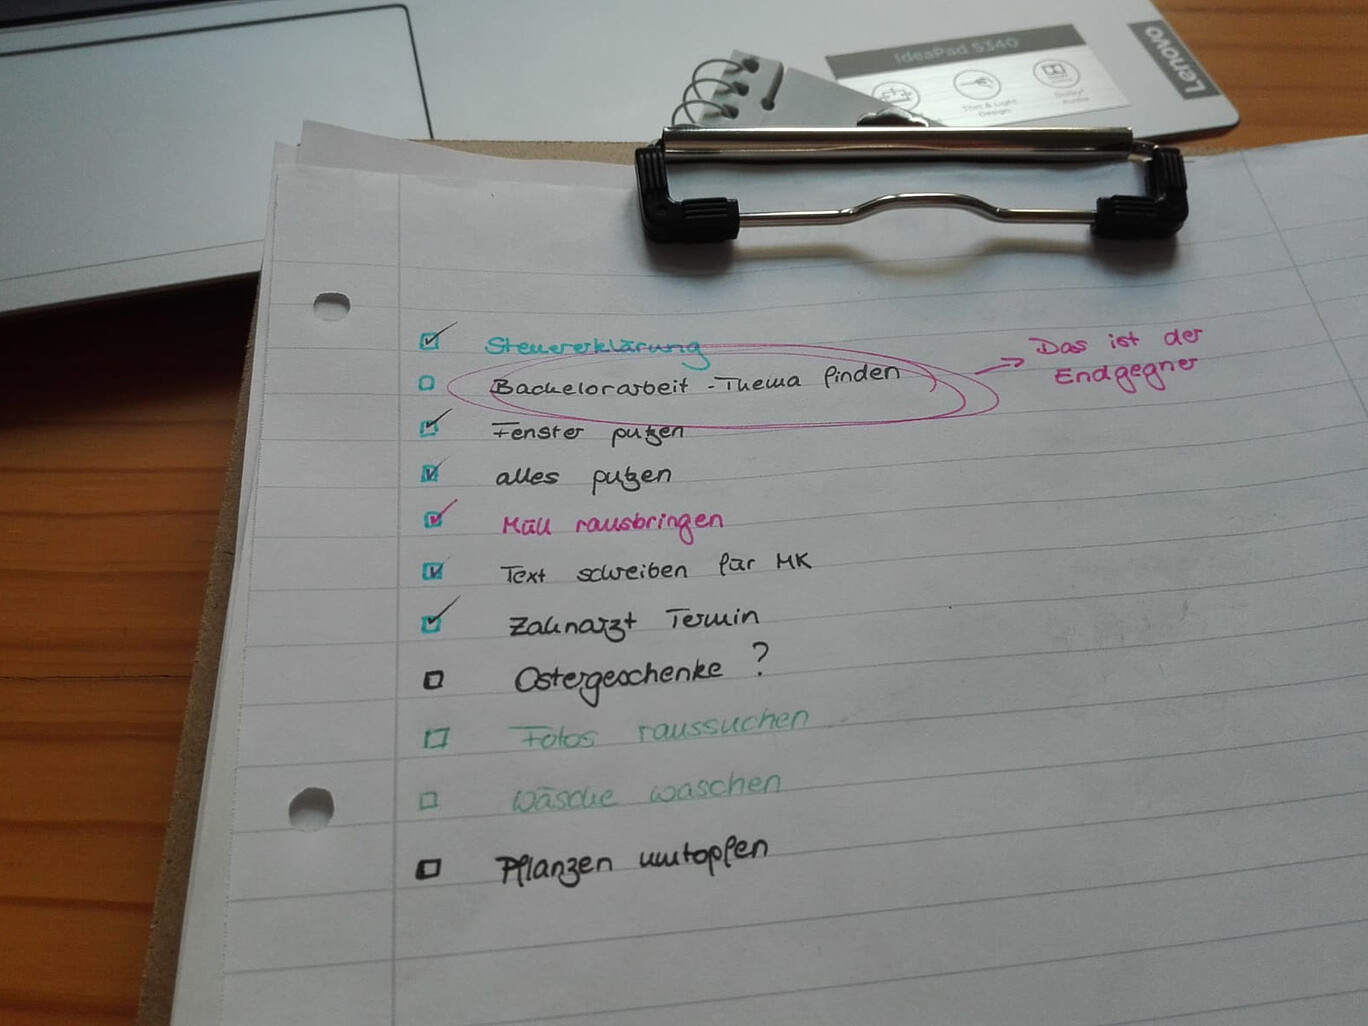 IdeaPad S340
Lenovo
Thin & Light
Design
Dolby
Audio
Steuererklärung
Bachelorarbeit - Thema finden
→ Das ist der
Endgegner
Fenster putzen
alles putzen
Müll rausbringen
Text schreiben für MK
Zahnarzt Termin
Ostergeschenke ?
Fotos raussuchen
Wäsche waschen
Pflanzen umtopfen